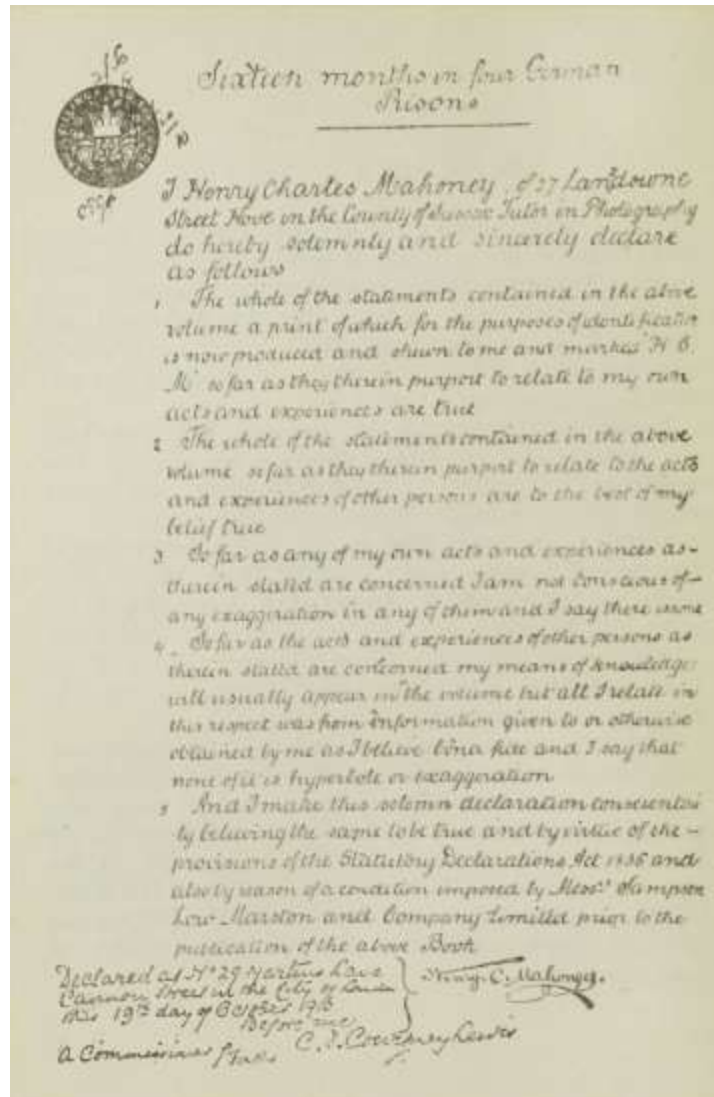 Sixteen months in four German
Prisons
I Henry Charles Mahoney, of 27 Lansdowne
Street Hove in the County of Sussex Tutor in Photography
do hereby solemnly and sincerely declare
as follows
1 The whole of the statements contained in the above
volume a print of which for the purposes of identification
is now produced and shewn to me and marked "H. C.
M" so far as they therein purport to relate to my own
acts and experiences are true
2 The whole of the statements contained in the above
volume so far as they therein purport to relate to the acts
and experiences of other persons are to the best of my
belief true
3 So far as any of my own acts and experiences as-
therein stated are concerned I am not conscious of-
any exaggeration in any of them and I say there is none
4 So far as the acts and experiences of other persons as
therein stated are concerned my means of knowledge
will usually appear in the volume but all I relate in
this respect was from information given to or otherwise
obtained by me as I believe bona fide and I say that
none of it is hyperbole or exaggeration
5 And I make this solemn declaration conscientious
ly believing the same to be true and by virtue of the-
provisions of the Statutory Declarations Act 1835 and
also by reason of a condition imposed by Messrs Sampson
Low Marston and Company Limited prior to the
publication of the above Book
Declared at No 29 Martins Lane
Cannon Street in the City of London
this 19th day of October
Before me
Henry C. Mahoney.
C. J. Courtney Lewis
A Commissioner